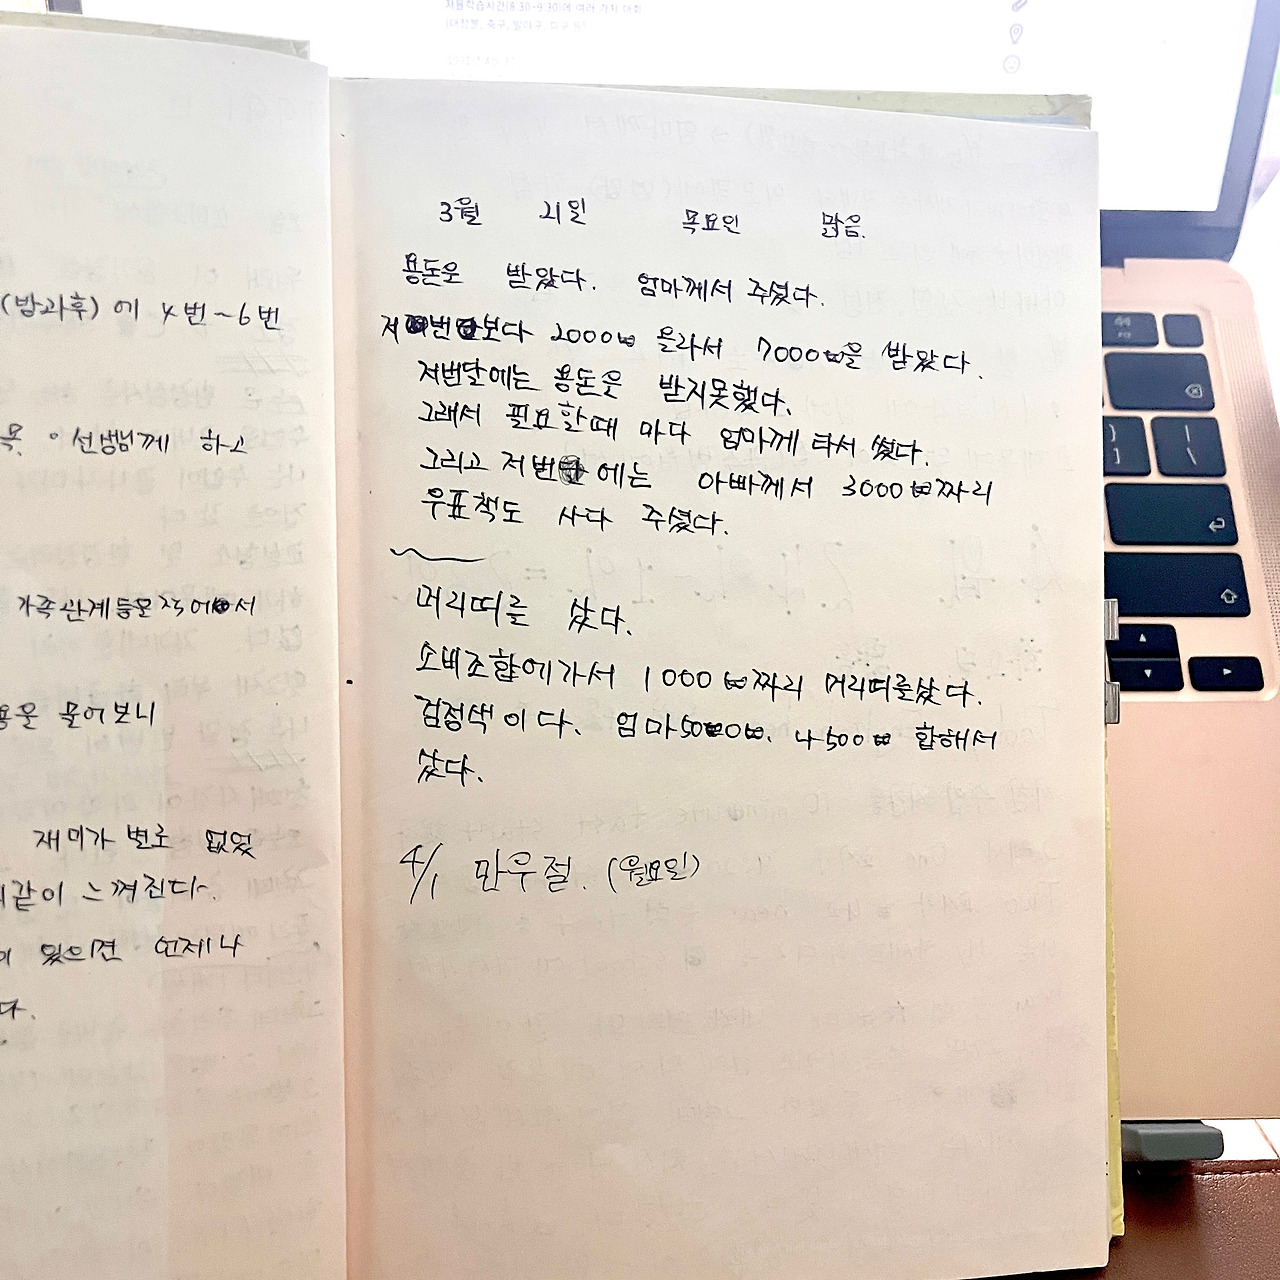 자율학습시간(8:30~9:30)에 여러 가지 대회
(방과후) 에 4번~6번
이 선생님께 하고
가족관계등본
물어보니
재미가 별로 없었
같이 느껴진다.
있으면 언제나
다.
3월 21일 목요일 맑음.
용돈을 받았다. 엄마께서 주셨다.
저번보다 2000₩ 올라서 7000₩을 받았다.
저번달에는 용돈을 받지못했다.
그래서 필요할때 마다 엄마께 타서 썼다.
그리고 저번에는 아빠께서 3000₩짜리
우표책도 사다 주셨다.
머리띠를 샀다.
소비조합에가서 1000₩짜리 머리띠를샀다.
검정색이다. 엄마500₩. 나500₩ 합해서
샀다.
4/1 만우절. (월요일)